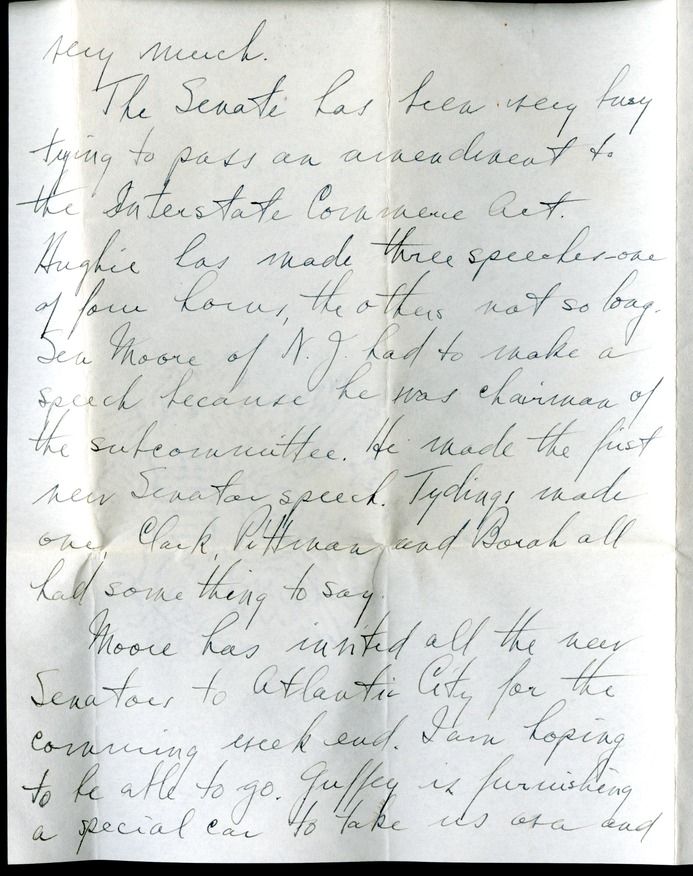 very much.
The Senate has been very busy
trying to pass an amendment to
the Interstate Commerce Act.
Hughie has made three speeches-one
of four hours, the others not so long.
Sen Moore of N. J. had to make a
speech because he was chairman of
the subcommittee. He made the first
new Senator speech. Tydings made
one, Clark, Pittman and Borah all
had something to say.
Moore has invited all the new
Senators to Atlantic City for the
comming week end. I am hoping
to be able to go. Guffey is furnishing
a special car to take us over and